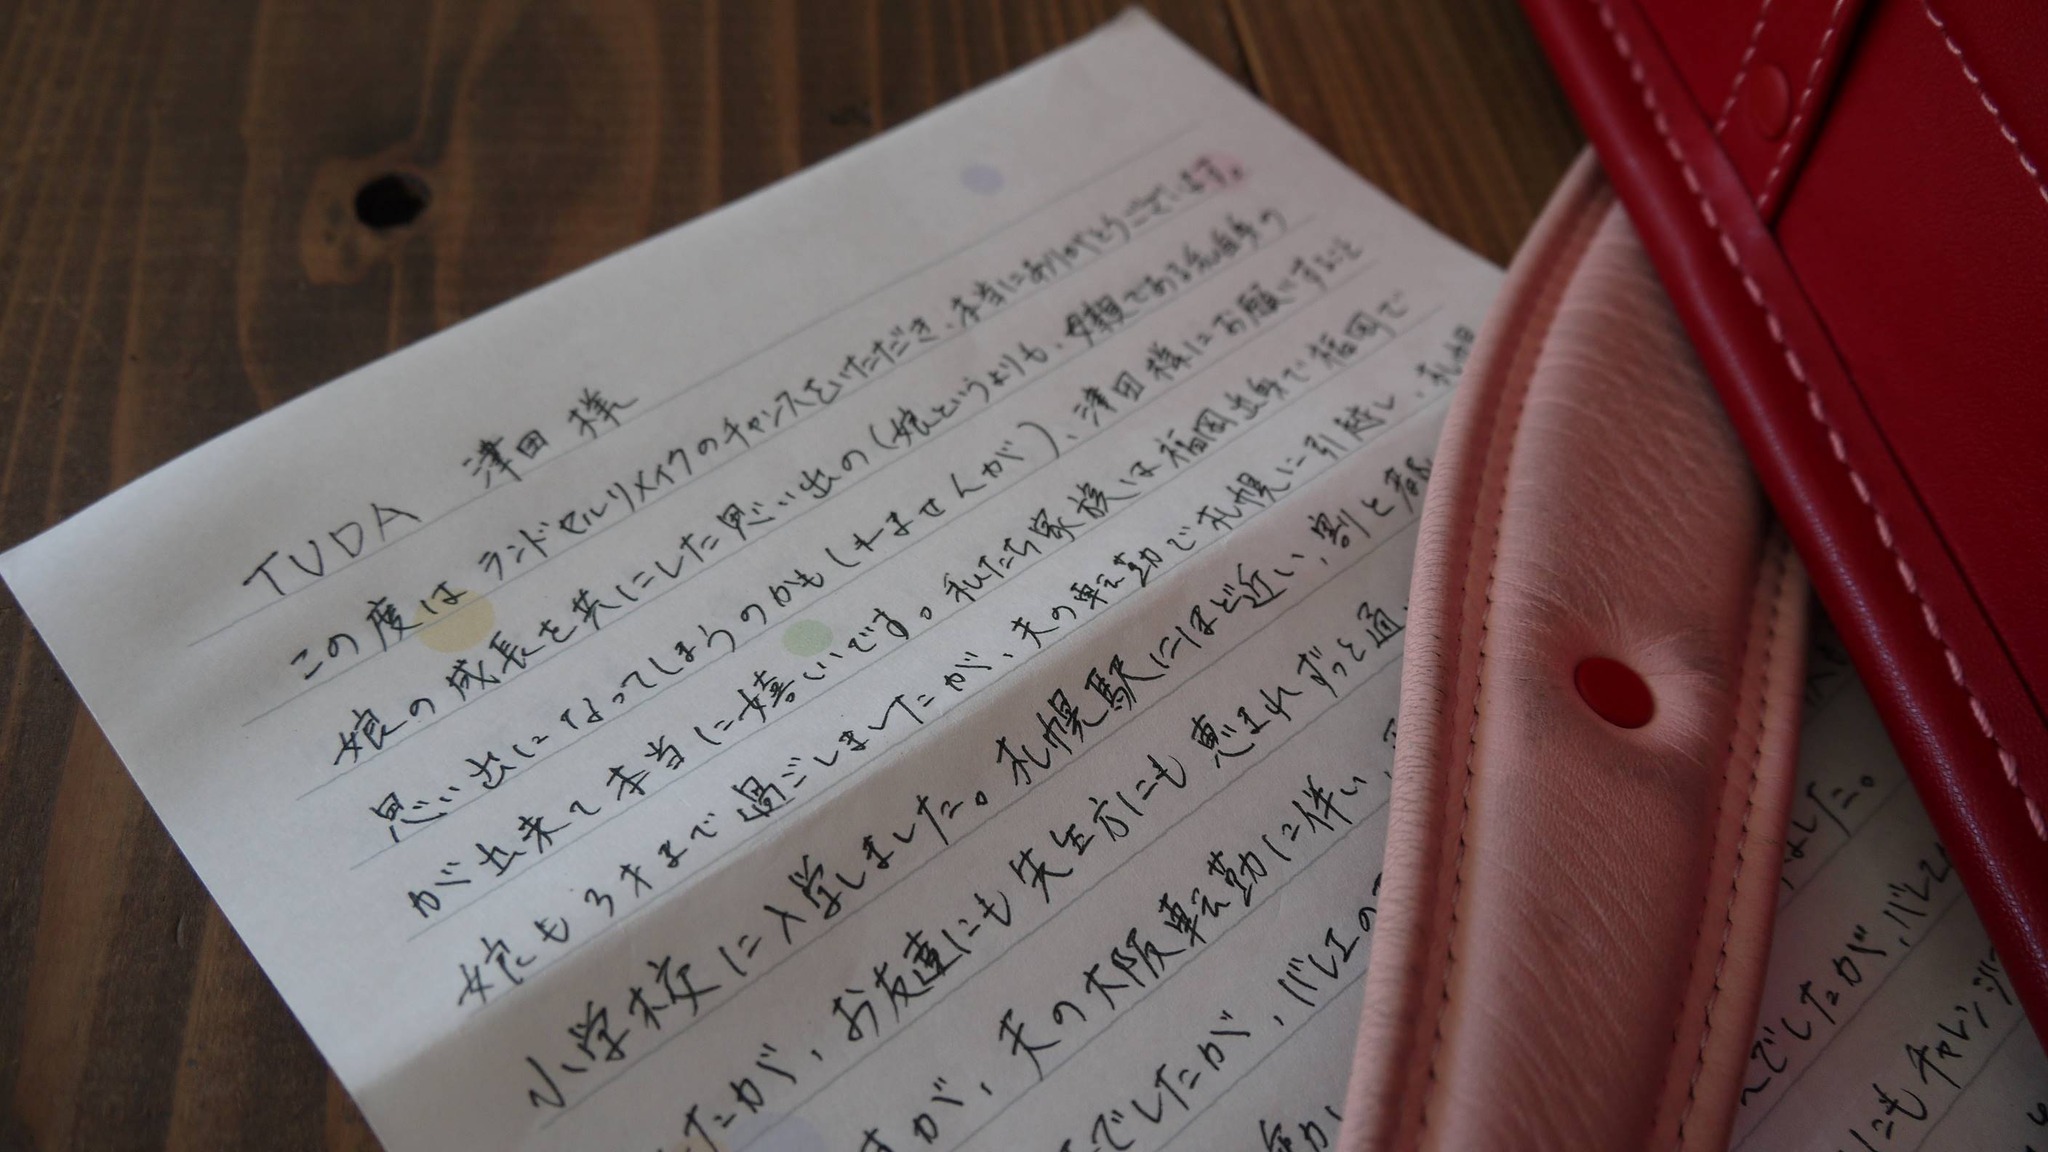 TUDA 津田 様
この度は ランドセルリメイクのチャンスをいただき、本当にありがとうございます。
娘の成長を共にした思い出の(娘というよりも、母親である私自身の
思い出になってしまうのかもしれませんが)、津田様にお願いすること
が出来て本当に嬉しいです。私たち家族は福岡出身で福岡で
娘も3才まで過ごしましたが、夫の転勤で札幌に引越し、札幌
小学校に入学しました。札幌駅にほど近い、割と都
したが、お友達にも先生方にも恵まれずっと通
すが、夫の大阪転勤に伴い、
でしたが、バレエの
ました。
んでしたが、バレエ
にもチャレンジ